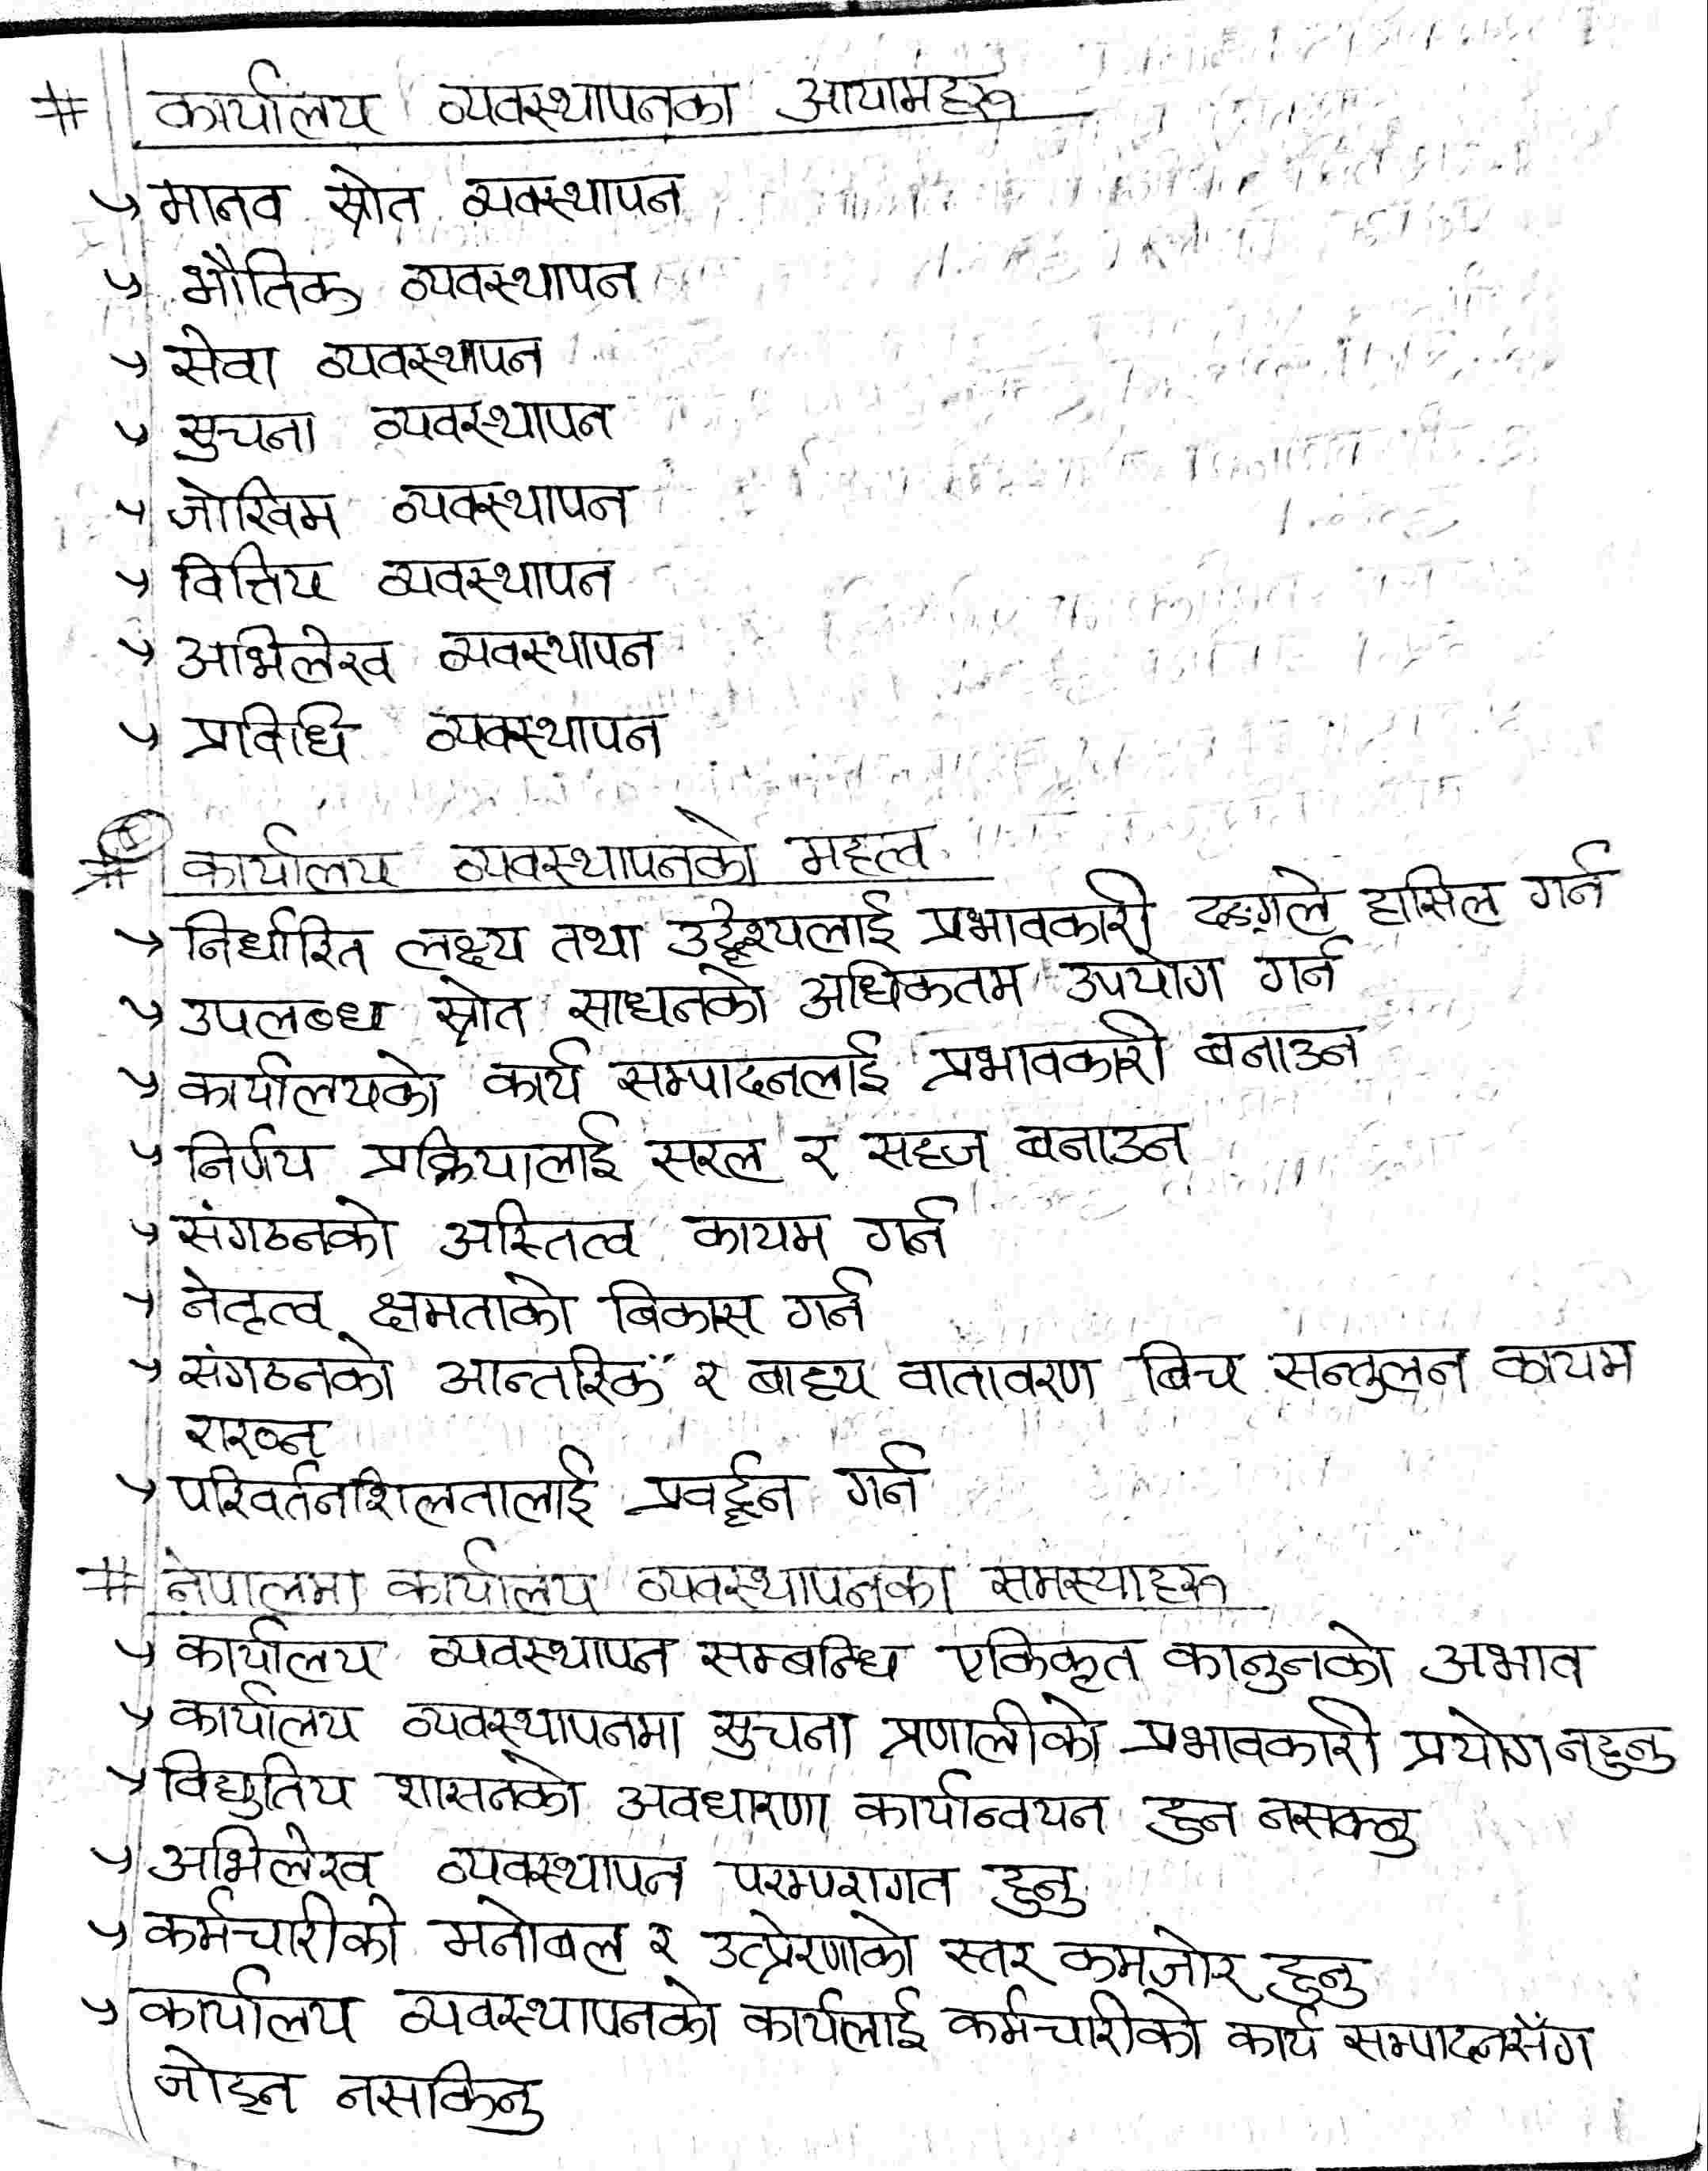 # कार्यालय व्यवस्थापनका आयामहरू
↪ मानव स्रोत व्यवस्थापन
↪ भौतिक व्यवस्थापन
↪ सेवा व्यवस्थापन
↪ सुचना व्यवस्थापन
↪ जोखिम व्यवस्थापन
↪ वित्तिय व्यवस्थापन
↪ अभिलेख व्यवस्थापन
↪ प्रविधि व्यवस्थापन
# कार्यालय व्यवस्थापनको महत्व
↪ निर्धारित लक्ष्य तथा उद्देश्यलाई प्रभावकारी ढङ्गले हासिल गर्न
↪ उपलब्ध स्रोत साधनको अधिकतम उपयोग गर्न
↪ कार्यालयको कार्य सम्पादनलाई प्रभावकारी बनाउन
↪ निर्णय प्रक्रियालाई सरल र सहज बनाउन
↪ संगठनको अस्तित्व कायम गर्न
↪ नेतृत्व क्षमताको बिकास गर्न
↪ संगठनको आन्तरिक र बाह्य वातावरण बिच सन्तुलन कायम
राख्न
↪ परिवर्तनशिलतालाई प्रवर्द्धन गर्न
# नेपालमा कार्यालय व्यवस्थापनका समस्याहरू
↪ कार्यालय व्यवस्थापन सम्बन्धि एकिकृत कानुनको अभाव
↪ कार्यालय व्यवस्थापनमा सुचना प्रणालीको प्रभावकारी प्रयोग नहुनु
↪ विद्युतिय शासनको अवधारणा कार्यान्वयन हुन नसक्नु
↪ अभिलेख व्यवस्थापन परम्परागत हुनु
↪ कर्मचारीको मनोबल र उत्प्रेरणाको स्तर कमजोर हुनु
↪ कार्यालय व्यवस्थापनको कार्यलाई कर्मचारीको कार्य सम्पादनसँग
जोड्न नसकिनु